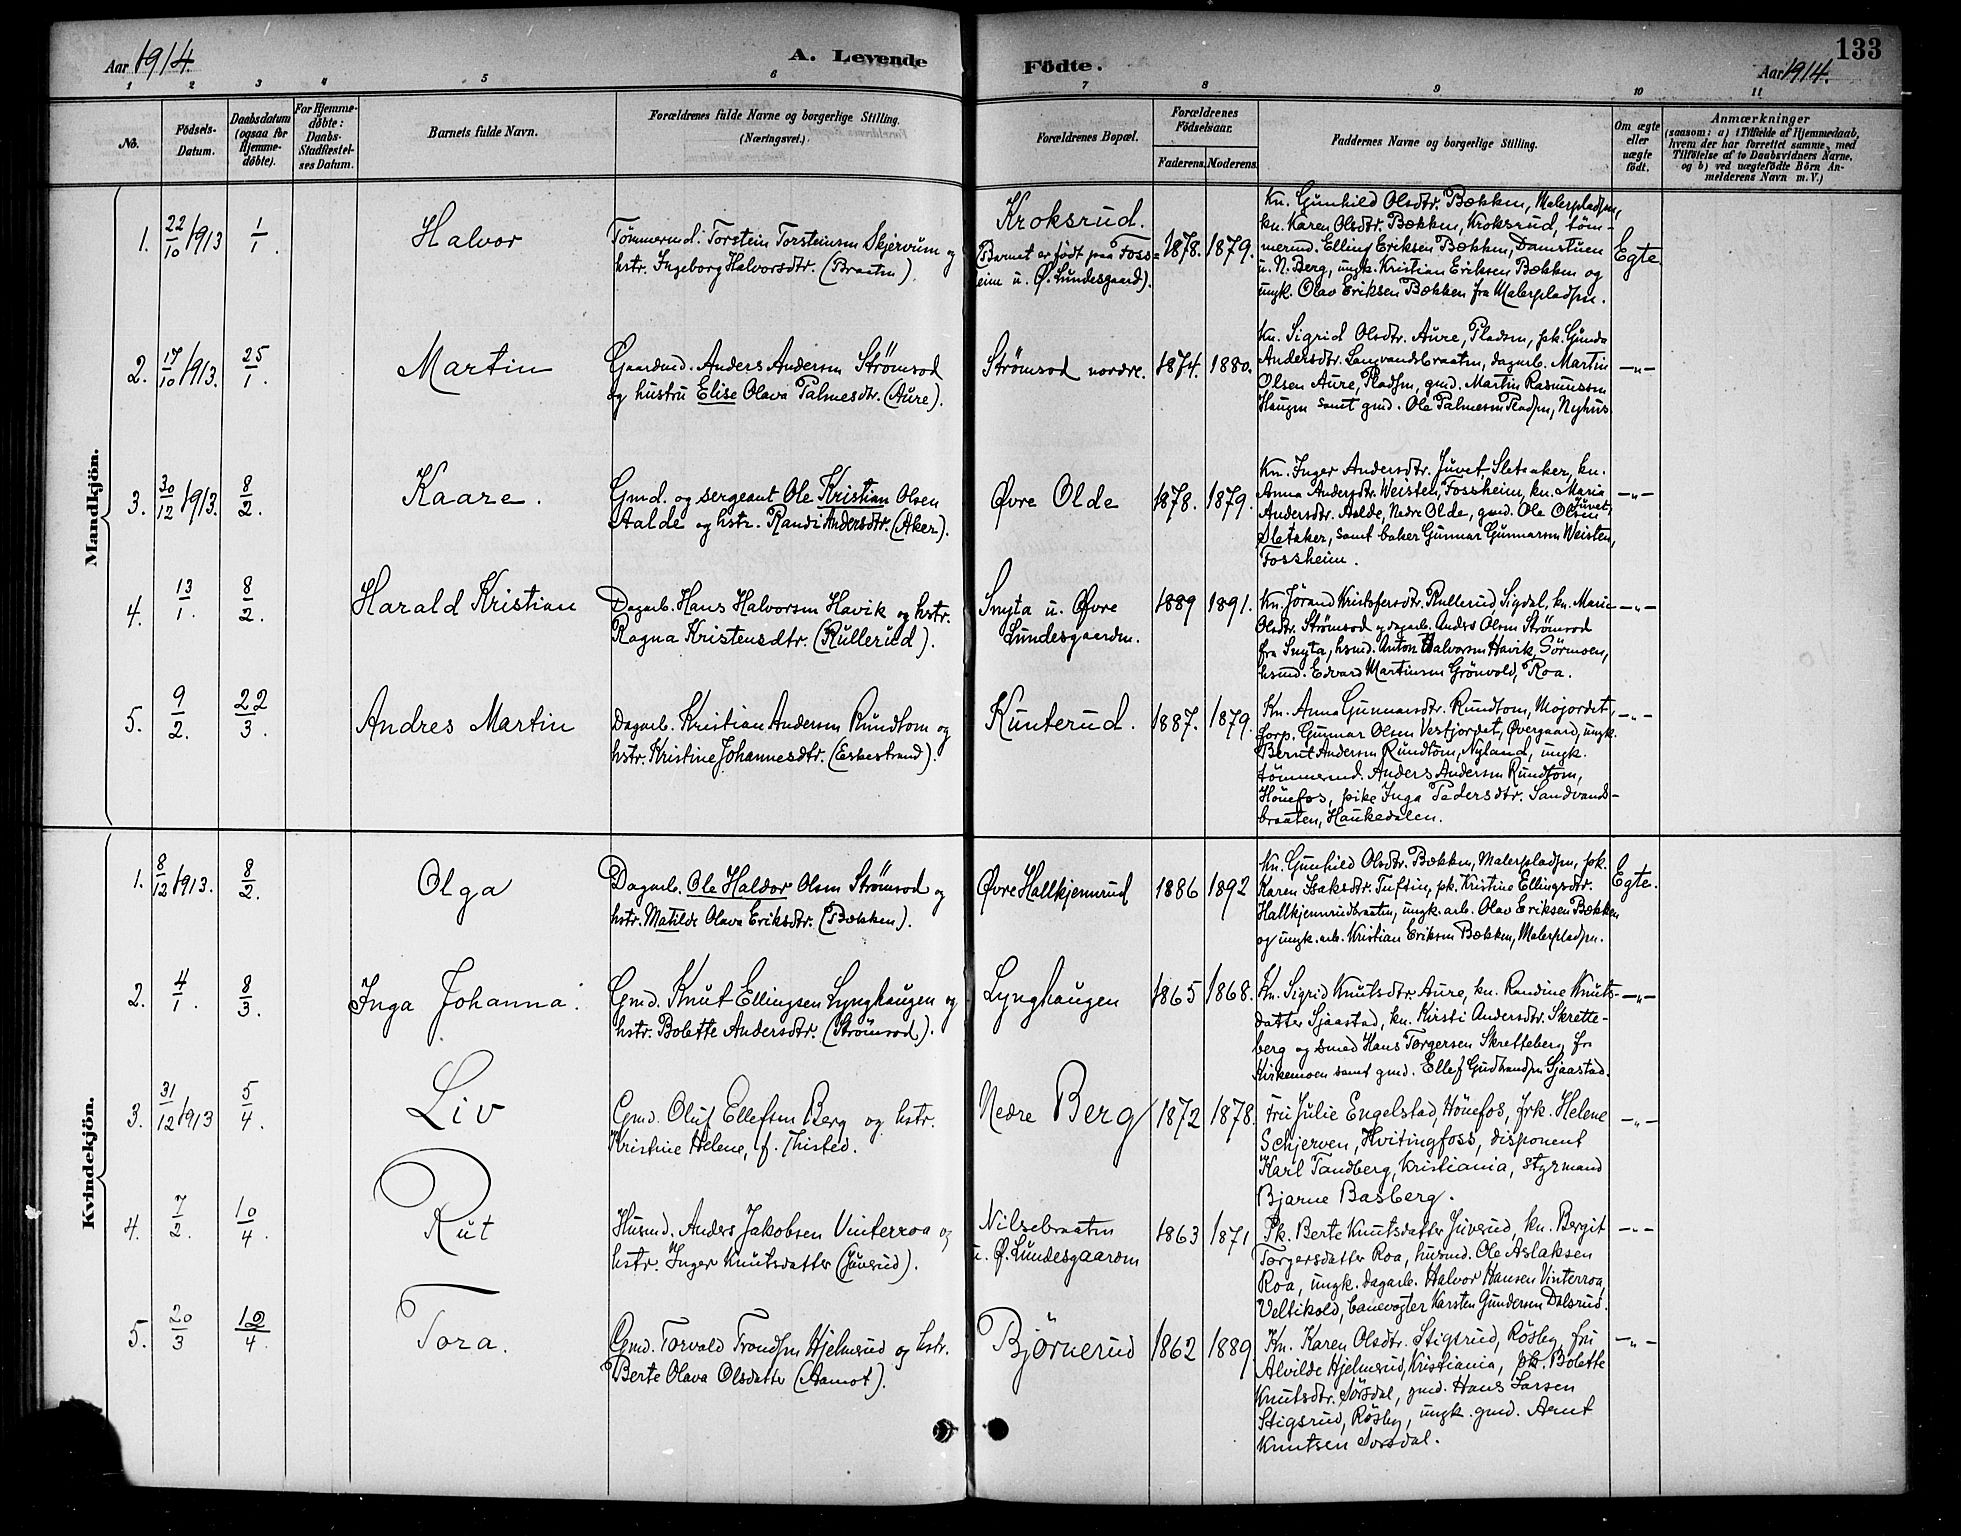 Aar 1914.
A. Levende
Födte.
133
Aar 1914.
1 2 3 4 5 6 7 8 9 10 11
No.
Födsels-
Datum.
Daabsdatum
(ogsaa for
Hjemme-
döbte).
For Hjemme-
döbte:
Daabs-
Stadfæstel-
ses Datum.
Barnets fulde Navn.
Forældrenes fulde Navne og borgerlige Stilling.
(Næringsvei.)
Forældrenes Bopæl.
Forældrenes
Födselsaar.
Faderens. Moderens.
Faddernes Navne og borgerlige Stilling.
Om ægte
eller
uægte
födt.
Anmærkninger
(saasom: a) i Tilfælde af Hjemmedaab,
hvem der har forrettet samme, med
Tilföielse af to Daabsvidners Navne,
og b) ved uægtefödte Börn An-
melderens Navn m. V.)
Mandkjön.
1.
22/10 1913
1/1.
Halvor
Tömmermd. Torstein Torsteinsen Skjervum og
hstr. Ingeborg Halvorsdtr. (Braaten).
Kroksrud.
(Barnet er födt paa Foss-
eim u. Ø. Lundesgaard).
1878. 1879.
Kn. Gunhild Olsdtr. Bækken, Malerpladsen,
kn. Karen Olsdtr. Bækken, Kroksrud, töm-
mermd. Elling Eriksen Bækken, Damstuen
u. N. Berg, ungk. Kristian Eriksen Bækken og
ungk. Olav Eriksen Bækken fra Malerpladsen.
Egte.
2.
17/10 1913.
25/1.
Martin
Gaardmd. Anders Andersen Strömsod
og hustru Elise Olava Palmesdtr. (Aure).
Strömsod nordre.
1874. 1880.
Kn. Sigrid Olsdtr. Aure, Pladsen, pk. Gunda
Andersdtr. Langvandsbraaten, dagarb. Martin
Olsen Aure, Pladsen, gmd. Martin Rasmussen
Haugen samt gmd. Ole Palmesen Pladsen, Nyhus
-„-
3.
30/12 1913.
8/2.
Kaare.
Gmd. og sergeant Ole Kristian Olsen
Aalde og hstr. Randi Andersdtr. (Aker).
Øvre Olde
1878. 1879.
Kn. Inger Andersdtr. Juvet, Sletaaker, kn.
Anna Andersdtr. Weisten, Fossheim, kn. Maria
Andersdtr. Aalde, Nedre Olde, gmd. Ole Olsen Juvet,
Sletaker, samt baker Gunnar Gunnarsen Weisten,
Fossheim.
-„-
4.
13/1.
8/2.
Harald Kristian
Dagarb. Hans Halvorsen Havik og hstr.
Ragna Kristensdtr. (Rullerud).
Snyta u. Øvre
Lundesgaarden.
1889 1891.
Kn. Jörand Kristofersdtr. Rullerud Sigdal, kn. Marie
Olsdtr. Strömsod og dagarb. Anders Olsen Strömsod
fra Snyta, hsmd. Anton Halvorsen Havik, Sörmoen,
hsmd. Edvard Martinsen Grönvold, Roa.
-„-
5.
9/2.
22/3.
Andres Martin
Dagarb. Kristian Andersen Rundtom og
hstr. Kristine Johannesdtr. (Eskestrand).
Kunterud.
1887. 1879.
Kn. Anna Gunnarsdtr. Rundtom, Mojordet,
forp. Gunnar Olsen Vestjordet, Øvergaard, ungk.
Bernt Andersen Rundtom, Nyland, ungk.
tömmermd. Anders Andersen Rundtom,
Hönefos, pike Inga Pedersdtr. Sandvands-
braaten, Haukedalen.
-„-
Kvindekjön.
1.
8/12 1913.
8/2.
Olga
Dagarb. Ole Haldor Olsen Strömsod og
hstr. Matilde Olava Eriksdtr. (Bækken).
Øvre Hallkjennrud
1886 1892
Kn. Gunhild Olsdtr. Bækken, Malerpladsen, pk.
Karen Isaksdtr. Tuftin, pk. Kristine Ellingsdtr.
Hallkjennrudbraaten, ungk. arb. Olav Eriksen Bækken
og ungk. arb. Kristian Eriksen Bækken, Malerpladsen.
Egte.
2.
4/1.
8/3.
Inga Johanna.
Gmd. Knut Ellingsen Lynghaugen og
hstr. Bolette Andersdtr. (Strömsod).
Lynghaugen
1865 1868.
Kn. Sigrid Knutsdtr. Aure, kn. Randine Knuts-
datter Sjaastad, kn. Kirsti Andersdtr. Skrette-
berg og smed Hans Torgersen Skretteberg fr
Kirkemoen samt gmd. Ellef Gudbrandsen Sjaastad.
-„-
3.
31/12 1913
5/4.
Liv
Gmd. Oluf Ellefsen Berg og hstr.
Kristine Helene, f. Thisted.
Nedre Berg
1872 1878.
Fru Julie Engelstad, Hönefos, frk. Helene
Schjerven, Hvitingfoss, disponent
Karl Tandberg, Kristiania, styrmand
Bjarne Basberg.
-„-
4.
7/2.
10/4.
Rut
Husmd. Anders Jakobsen Vinterroa og
hstr. Inger Knutsdatter (Juverud).
Nilsebraaten
u. Ø. Lundesgaarden
1863 1871
Pk. Berte Knutsdatter Juverud, kn. Bergit
Torgersdatter Roa, husmd. Ole Aslaksen
Roa, ungk. dagarb. Halvor Hansen Vinterroa,
Veltikold, banevogter Karsten Gundersen Dalsrud.
-„-
5.
20/3
12/4.
Tora.
Gmd. Torvald Trondsen Hjelmerud og hstr.
Berte Olava Olsdatter (Aamot).
Björnerud
1862 1889
Kn. Karen Olsdtr. Stigsrud, Rösby, fru
Alvilde Hjelmerud, Kristiania, pk. Bolette
Knutsdtr. Sörsdal, gmd. Hans Larsen
Stigsrud, Rösby, ungk. gmd. Arnt
Knutsen Sorsdal.
-„-